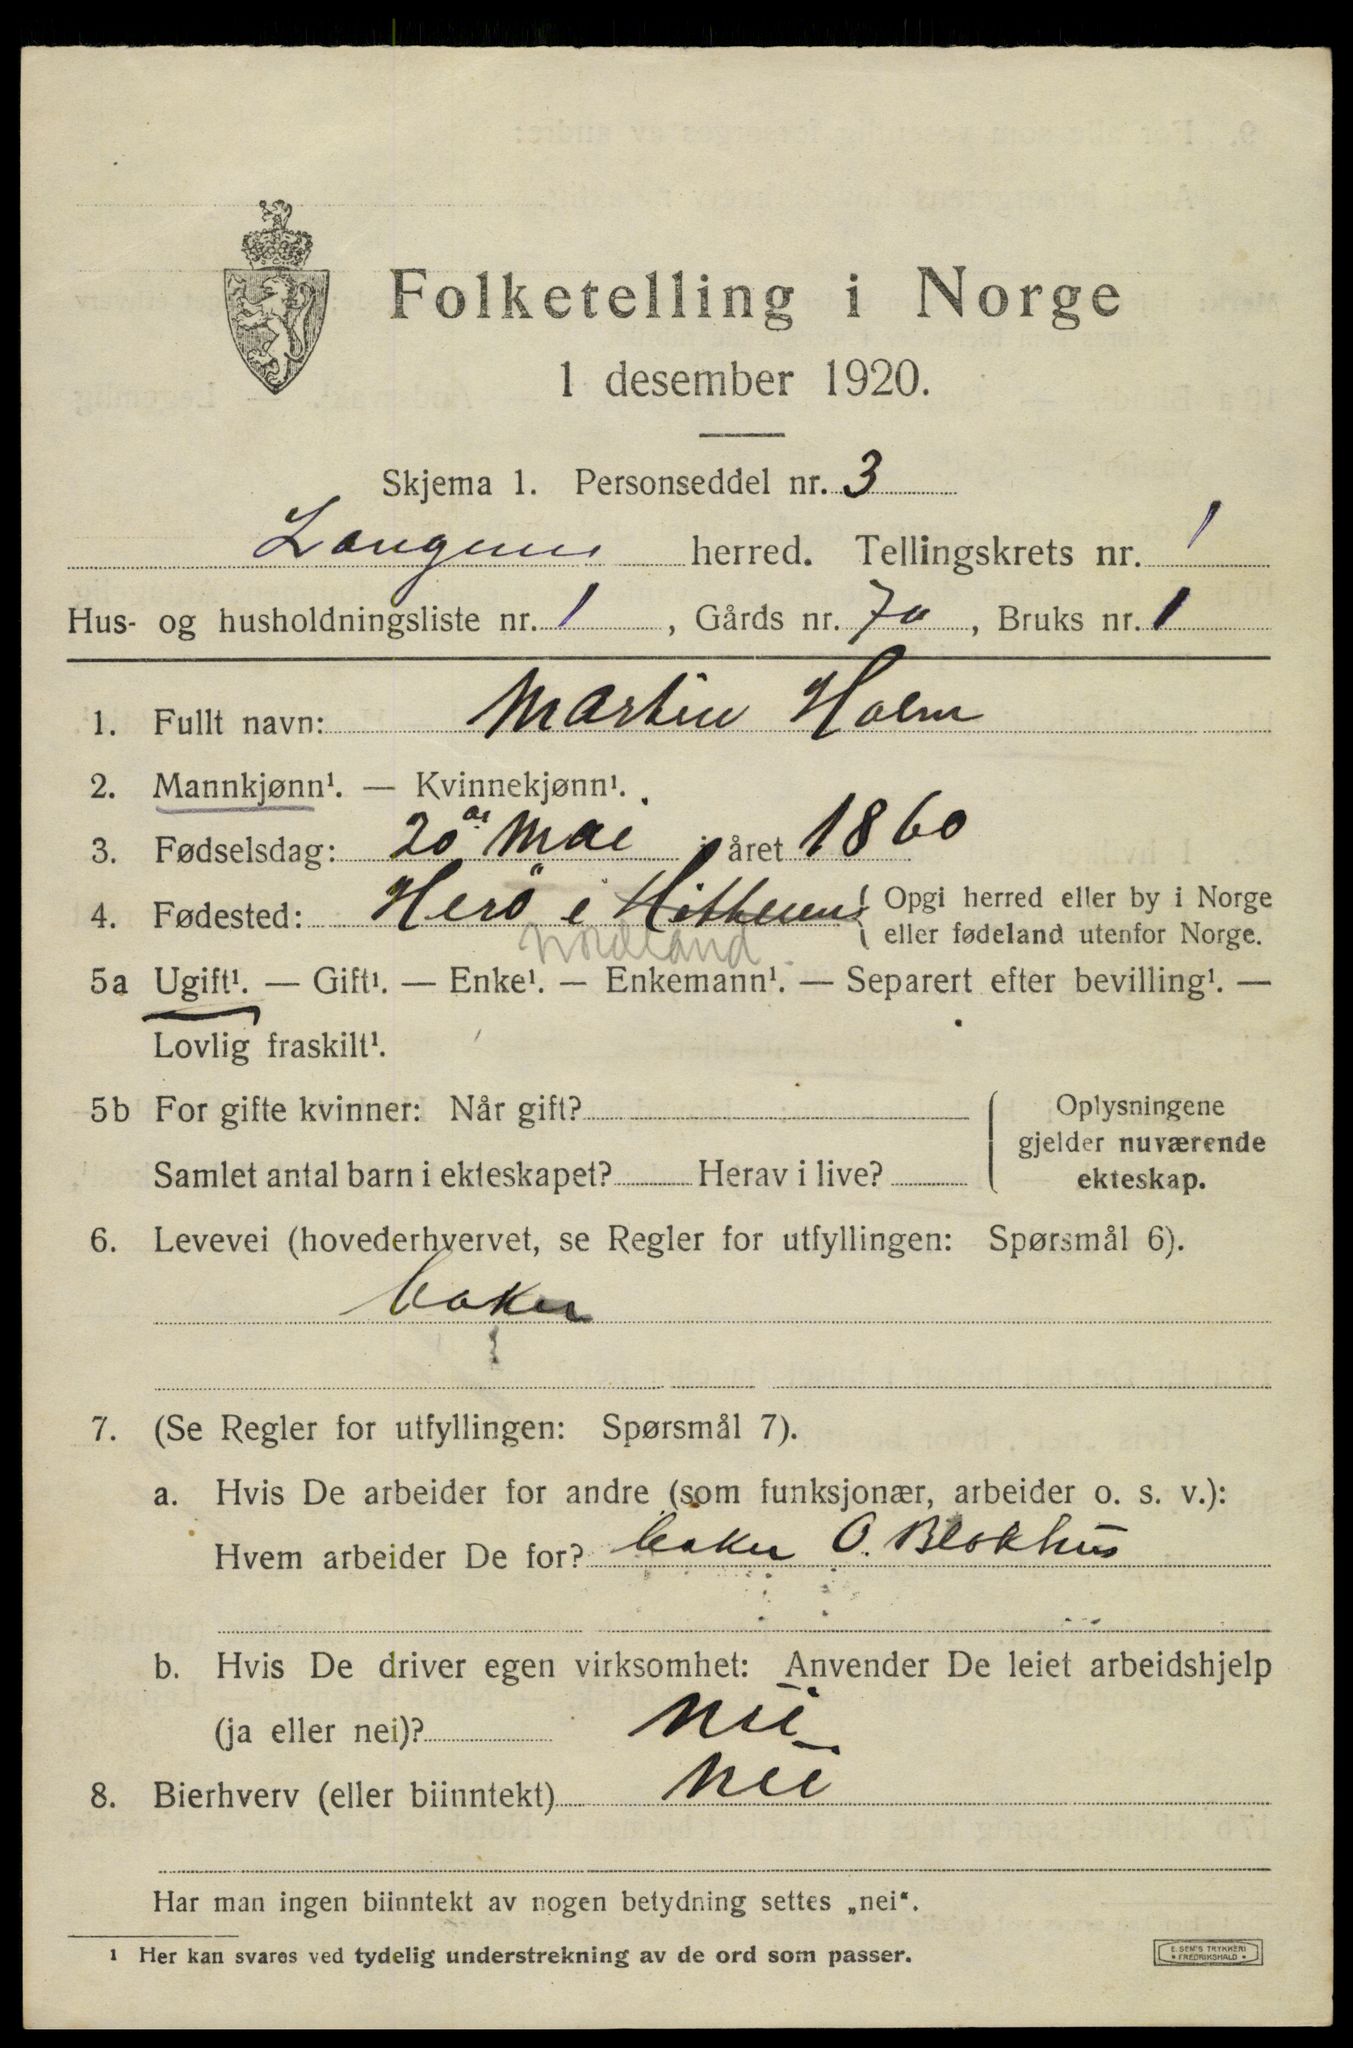 Folketelling i Norge
1 desember 1920.
Skjema 1. Personseddel nr. 3
Langenes herred. Tellingskrets nr. 1
Hus- og husholdningsliste nr. 1, Gårds nr. 70, Bruks nr. 1
1. Fullt navn: Martin Holm
2. Mannkjønn¹. — Kvinnekjønn¹.
3. Fødselsdag: 20 Mai året 1860
4. Fødested: Herö i { Opgi herred eller by i Norge
Nordland eller fødeland utenfor Norge.
5a Ugift¹. — Gift¹. — Enke¹. — Enkemann¹. — Separert efter bevilling¹. —
Lovlig fraskilt¹.
5b For gifte kvinner: Når gift? Oplysningene
gjelder nuværende
Samlet antal barn i ekteskapet? Herav i live? ekteskap.
6. Levevei (hovederhvervet, se Regler for utfyllingen: Spørsmål 6).
baker
7. (Se Regler for utfyllingen: Spørsmål 7).
a. Hvis De arbeider for andre (som funksjonær, arbeider o. s. v.):
Hvem arbeider De for? baker O. Blokhus
b. Hvis De driver egen virksomhet: Anvender De leiet arbeidshjelp
(ja eller nei)? nei
8. Bierhverv (eller biinntekt) nei
Har man ingen biinntekt av nogen betydning settes „nei“.
¹ Her kan svares ved tydelig understrekning av de ord som passer.
E. SEM'S TRYKKERI
FREDRIKSHALD